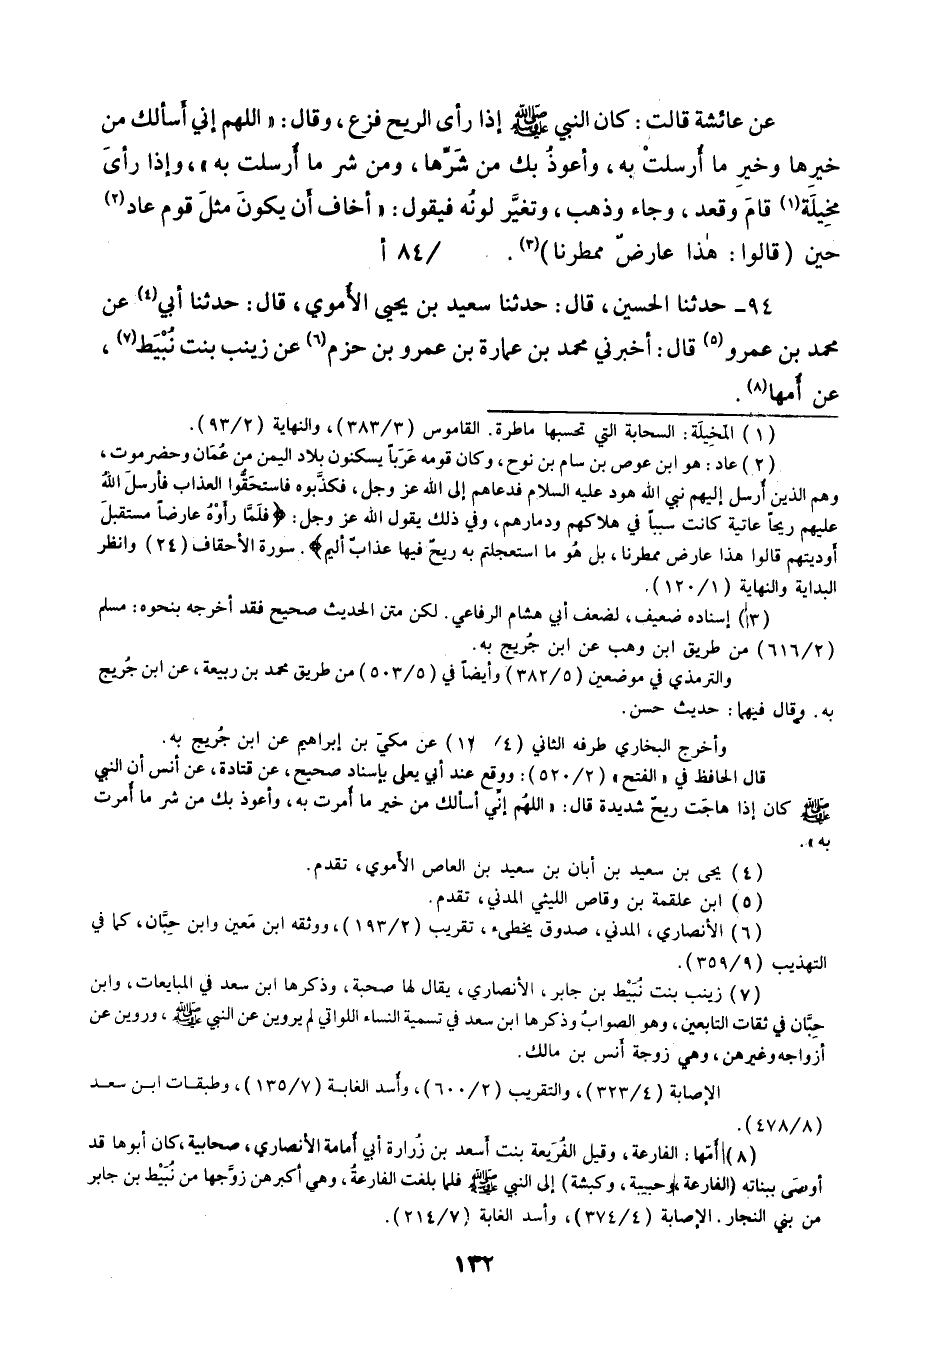 عن عائشة قالت: كان النبي ﷺ إذا رأى الريح فزع، وقال: « اللهم إني أسألك من
خيرِها وخيرِ ما أُرسلتْ به، وأعوذُ بك من شَرِّها، ومن شر ما أُرسلت به »، وإذا رأىَ
مخِيلَة(١) قامَ وقعد، وجاء وذهب، وتغيَّر لونُه فيقول: « أخاف أن يكونَ مثلَ قوم عاد(٢)
حين (قالوا: هٰذا عارضٌ ممطرنا)(٣). /٨٤ أ
٩٤ـ حدثنا الحسين، قال: حدثنا سعيد بن يحيى الأُموي، قال: حدثنا أبي(٤) عن
محمد بن عمرو(٥) قال: أخبرني محمد بن عمارة بن عمرو بن حزم(٦) عن زينب بنت نُبَيْط(٧)،
عن أُمها(٨).
(١) المخِيلَة: السحابة التي تحسبها ماطرة. القاموس (٣٨٣/٣)، والنهاية (٩٣/٢).
(٢) عاد: هو ابن عوص بن سام بن نوح، وكان قومه عَرَباً يسكنون بلاد اليمن من عُمَان وحضرموت،
وهم الذين أُرسل إليهم نبي الله هود عليه السلام فدعاهم إلى الله عز وجل، فكذَّبوه فاستحقُّوا العذاب فأرسلَ اللهُ
عليهم ريحاً عاتية كانت سبباً في هلاكهم ودمارهم، وفي ذلك يقول الله عز وجل: ﴿ فلَمَّا رأوْهُ عارضاً مستقبلَ
أوديتهم قالوا هذا عارض ممطرنا، بل هُو ما استعجلتم به ريحٌ فيها عذابٌ أليم﴾. سورة الأحقاف (٢٤) وانظر
البداية والنهاية (١٢٠/١).
(٣) إسناده ضعيف، لضعف أبي هشام الرفاعي. لكن متن الحديث صحيح فقد أخرجه بنحوه: مسلم
(٦١٦/٢) من طريق ابن وهب عن ابن جُريج به.
والترمذي في موضعين (٣٨٢/٥) وأيضاً في (٥٠٣/٥) من طريق محمد بن ربيعة، عن ابن جُريج
به. وقال فيهما: حديث حسن.
وأخرج البخاري طرفه الثاني (٤/ ١٢) عن مكيّ بن إبراهيم عن ابن جُريج به.
قال الحافظ في « الفتح » (٥٢٠/٢): ووقع عند أبي يعلى بإسناد صحيح، عن قتادة، عن أنس أن النبي
ﷺ كان إذا هاجَت ريحٌ شديدة قال: « اللهُم إنِّي أسألك من خير ما أُمرت به، وأعوذ بك من شر ما أُمرت
به ».
(٤) يحى بن سعيد بن أبان بن سعيد بن العاص الأُموي، تقدم.
(٥) ابن علقمة بن وقاص الليثي المدني، تقدم.
(٦) الأنصاري، المدني، صدوق يخطىء، تقريب (١٩٣/٢)، ووثقه ابن مَعين وابن حِبَّان، كما في
التهذيب (٣٥٩/٩).
(٧) زينب بنت نُبَيْط بن جابر، الأنصاري، يقال لها صحبة، وذكرها ابن سعد في المبايعات، وابن
حِبَّان في ثقات التابعين، وهو الصوابُ وذكرها ابن سعد في تسمية النساء اللواتي لم يروين عن النبي ﷺ، وروين عن
أزواجه وغيرهن، وهي زوجة أنس بن مالك.
الإصابة (٣٢٣/٤)، والتقريب (٦٠٠/٢)، وأُسد الغابة (١٣٥/٧)، وطبقات ابن سعد
(٤٧٨/٨).
(٨) أُمّها: الفارعة، وقيل الفُرَيعة بنت أسعد بن زُرارة أبي أمامة الأنصاري، صحابية، كان أبوها قد
أوصَى ببناته (الفارعة وحبيبة، وكبشة) إلى النبي ﷺ فلما بلغت الفارعةُ، وهي أكبرهن زوَّجها من نُبَيْط بن جابر
من بني النجار. الإصابة (٣٧٤/٤)، وأسد الغابة (٢١٤/٧).
١٣٢